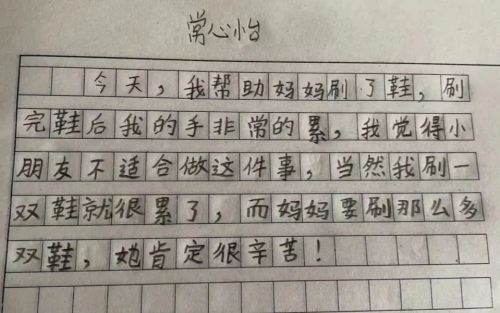 常心怡
今天，我帮助妈妈刷了鞋，刷
完鞋后我的手非常的累，我觉得小
朋友不适合做这件事，当然我刷一
双鞋就很累了，而妈妈要刷那么多
双鞋，她肯定很辛苦！